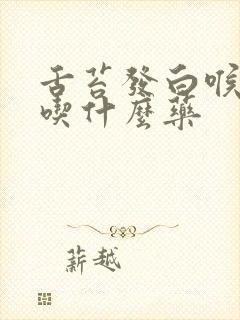 舌苔發白喉
喫什麼藥
薪越